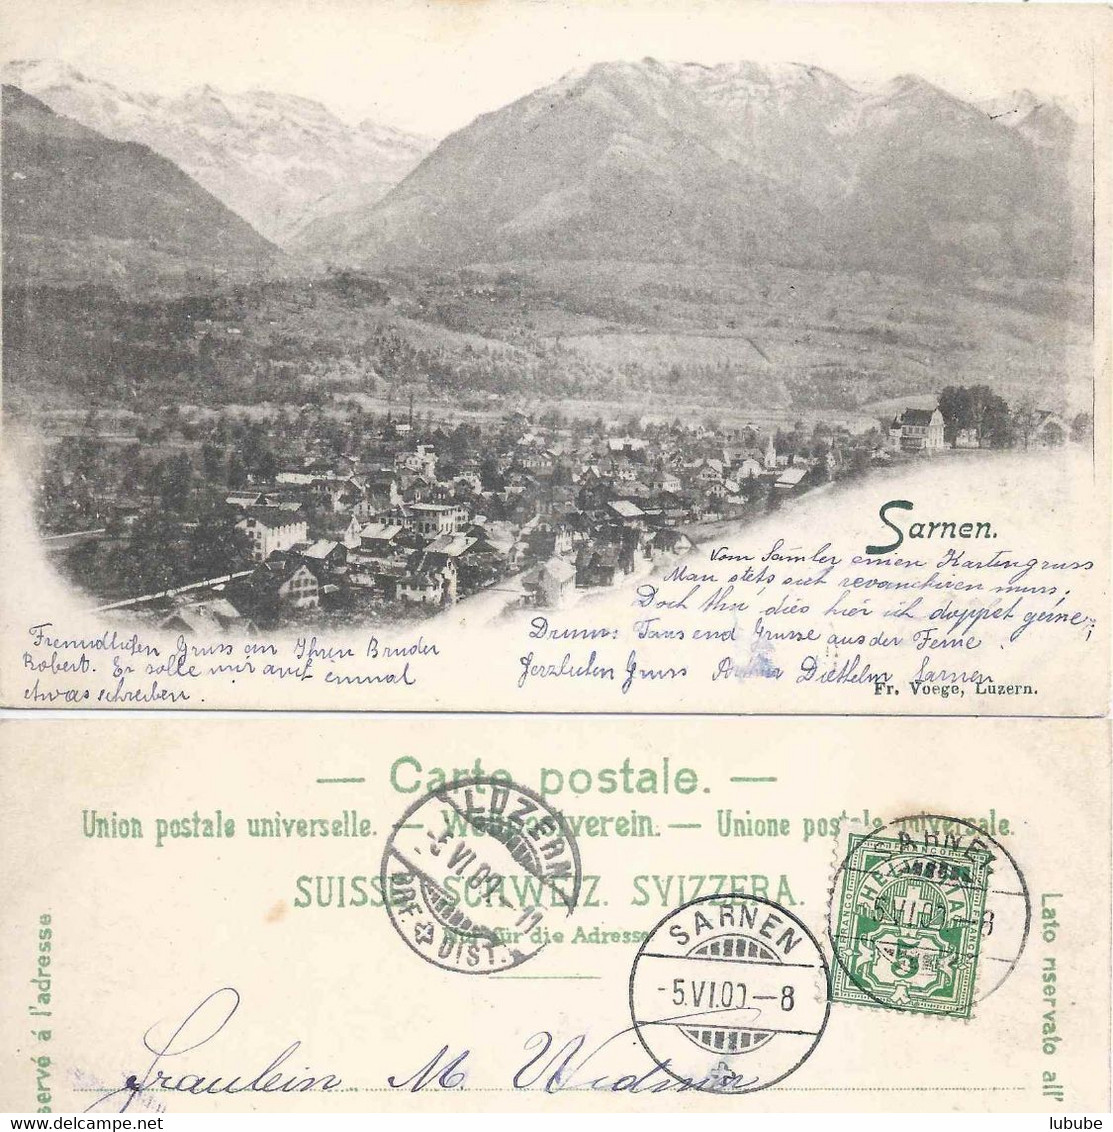 Sarnen.
Vom Samler einen Kartengruss
Man stets auch revanchiren muss,
Doch Ihn dies hier ich doppet gerne;
Drum: Tausend Grüsse aus der Ferne.
Herzlichen Gruss Diethelm Sarnen
Fr. Voege, Luzern.
Freundlichen Gruss an Ihren Bruder
Robert. Er solle mir auch einmal
etwas schreiben.
— Carte postale. —
Union postale universelle. — Weltpostverein. — Unione postale universale.
SUISSE. SCHWEIZ. SVIZZERA.
Nur für die Adresse
LUZERN
-5.VI.00.-11
BRF. DIST.
SARNEN
-5.VI.00.-8
SARNEN
-5.VI.00.-8
FRANCO
HELVETIA
5
servé á l'adresse.
Lato riservato all'
Fräulein M. Widmer
lubube